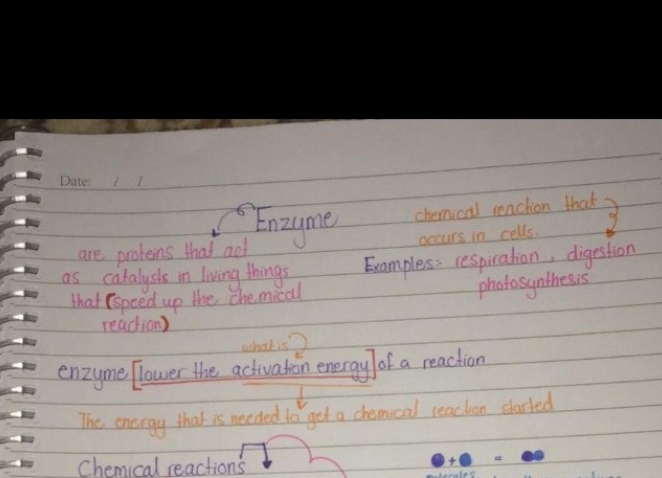 Date: / /
Enzyme
are proteins that act
as catalysts in living things
that (speed up the chemical
reaction)
chemical reaction that
occurs in cells.
Examples: respiration, digestion
photosynthesis
what is
enzyme [lower the activation energy] of a reaction
The energy that is needed to get a chemical reaction started
Chemical reactions
+ =
molecules